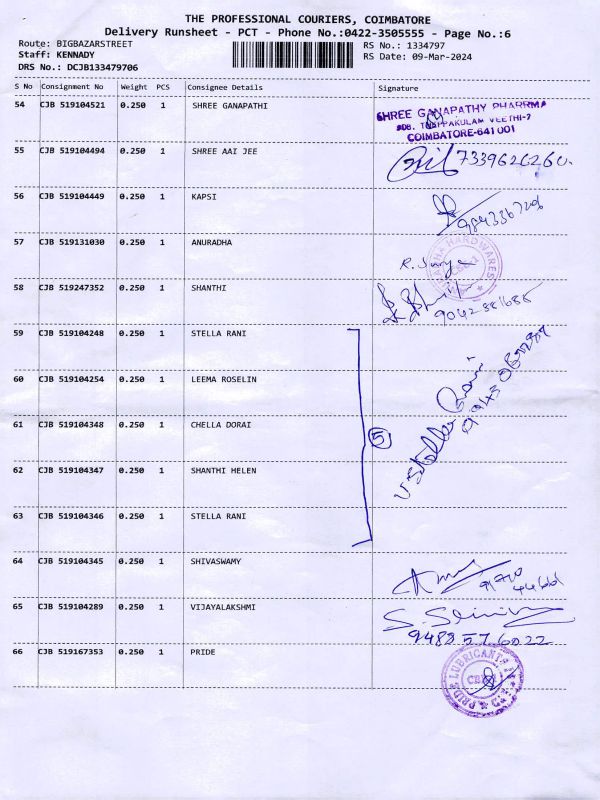 THE PROFESSIONAL COURIERS, COIMBATORE
Delivery Runsheet - PCT - Phone No.:0422-3505555 - Page No.:6
Route: BIGBAZARSTREET
Staff: KENNADY
DRS No.: DCJB133479706
RS No.: 1334797
RS Date: 09-Mar-2024
S No Consignment No Weight PCS Consignee Details Signature
54 CJB 519104521 0.250 1 SHREE GANAPATHI
SHREE GANAPATHY PHARRMA
COIMBATORE-641 001
55 CJB 519104494 0.250 1 SHREE AAI JEE 7339626260.
56 CJB 519104449 0.250 1 KAPSI
57 CJB 519131030 0.250 1 ANURADHA
R. Surya
HARDWARES
58 CJB 519247352 0.250 1 SHANTHI
59 CJB 519104248 0.250 1 STELLA RANI
60 CJB 519104254 0.250 1 LEEMA ROSELIN
61 CJB 519104348 0.250 1 CHELLA DORAI
5
62 CJB 519104347 0.250 1 SHANTHI HELEN
63 CJB 519104346 0.250 1 STELLA RANI
64 CJB 519104345 0.250 1 SHIVASWAMY
65 CJB 519104289 0.250 1 VIJAYALAKSHMI
9488576022
66 CJB 519167353 0.250 1 PRIDE
PRIDE LUBRICANTS